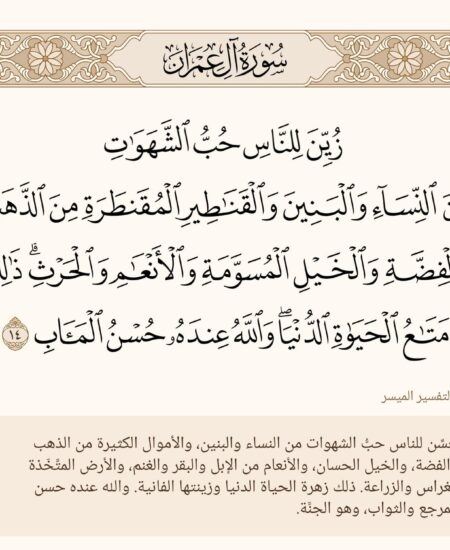 سُورَةُ آلِ عِمْرَانَ
زُيِّنَ لِلنَّاسِ حُبُّ ٱلشَّهَوَٰتِ
ٱلنِّسَآءِ وَٱلْبَنِينَ وَٱلْقَنَٰطِيرِ ٱلْمُقَنطَرَةِ مِنَ ٱلذَّهَ
لْفِضَّةِ وَٱلْخَيْلِ ٱلْمُسَوَّمَةِ وَٱلْأَنْعَٰمِ وَٱلْحَرْثِۗ ذَٰلِ
مَتَٰعُ ٱلْحَيَوٰةِ ٱلدُّنْيَاۖ وَٱللَّهُ عِندَهُۥ حُسْنُ ٱلْمَـَٔابِ ١٤
لتفسير الميسر
حسِّن للناس حبُّ الشهوات من النساء والبنين، والأموال الكثيرة من الذهب
الفضة، والخيل الحسان، والأنعام من الإبل والبقر والغنم، والأرض المتَّخَذة
لغراس والزراعة. ذلك زهرة الحياة الدنيا وزينتها الفانية. والله عنده حسن
مرجع والثواب، وهو الجنَّة.